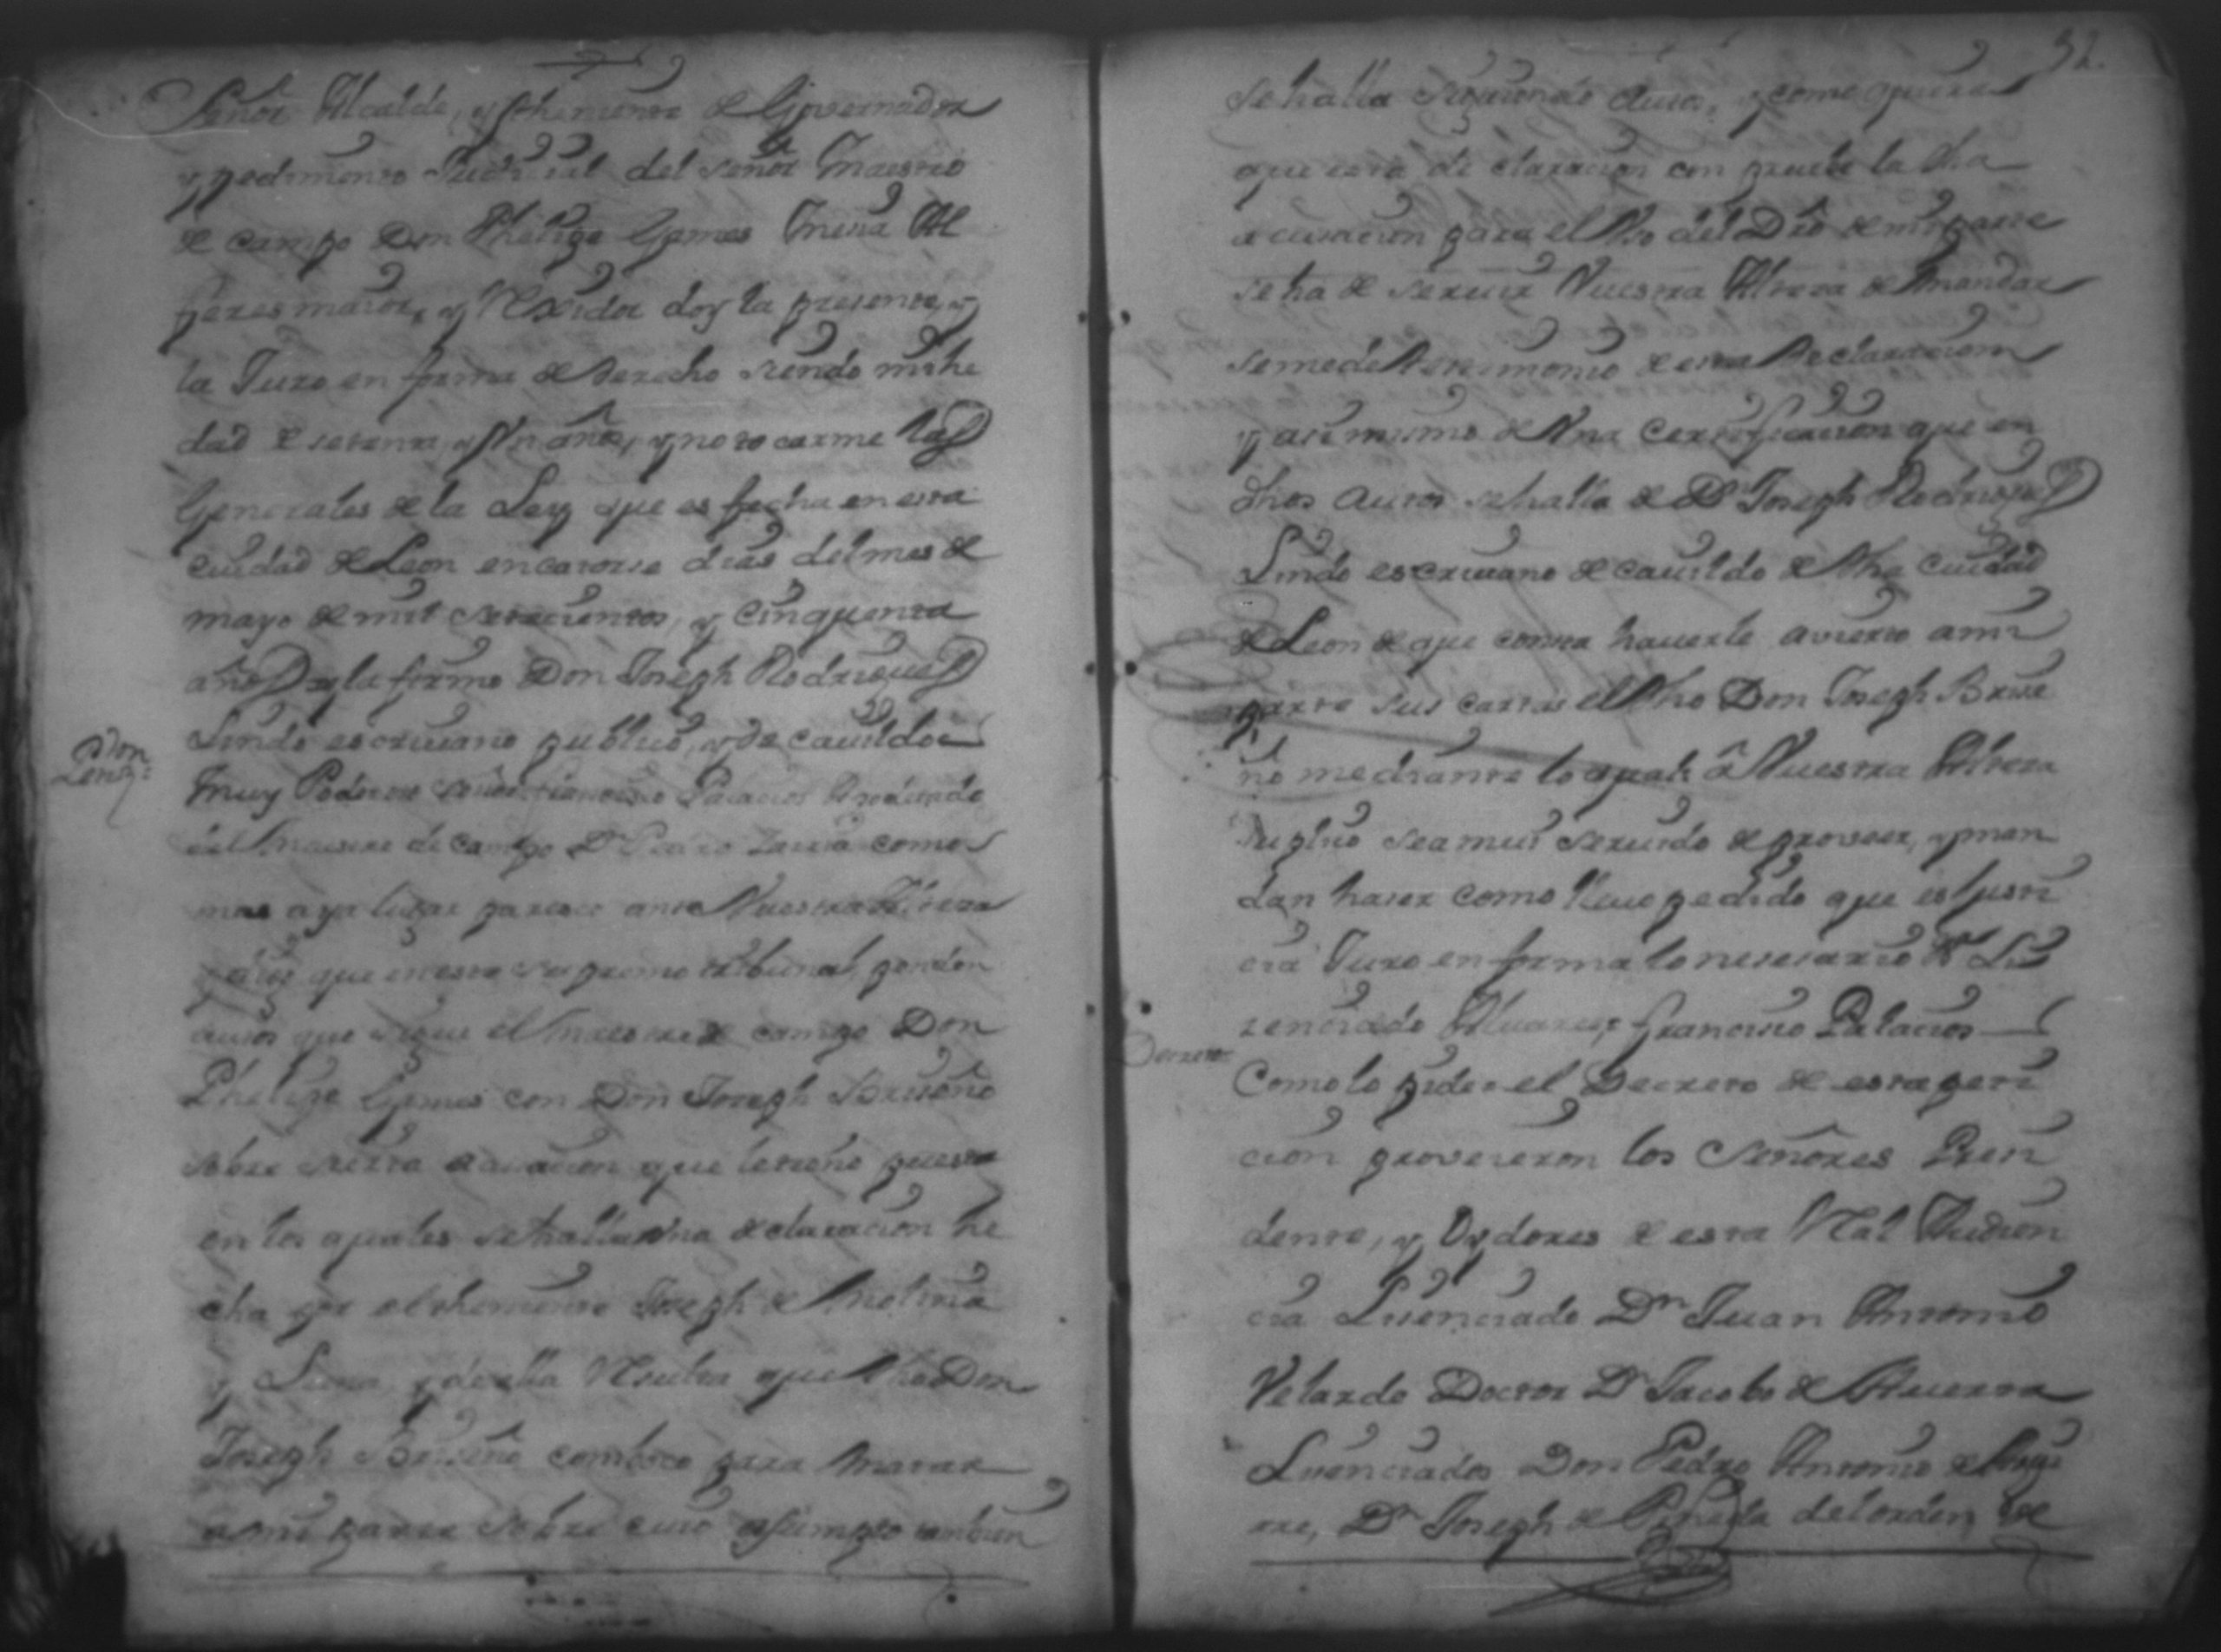 Señor Alcalde, y theniente de Governador
y pedimento Judicial del señor Maestro
de campo Don Phelipe Gomes Mesia Al
feres maior, y Rexidor doy la presente, y
la Juro en forma de derecho siendo mi he
dad de setenta, y un años, y no tocarme las
Generales de la Ley que es fecha en esta
ciudad de Leon en catorse dias del mes de
mayo de mil setecientos, y cinquenta
años y la firmo Don Joseph Rodrigues
Lindo escriuano publico, y de cauildo
Peon
Muy Poderoso señor Francisco Palacios Apoderado
del Maestre de campo Dn Pedro como
mas aya lugar paresco ante Vuestra Alteza
y digo que en este supremo tribunal, penden
autos que sigue el Maestre de campo Don
Phelipe Gomes con Don Joseph Briseño
sobre sierta acusacion que le tiene puesta
en los quales se halla una declaracion he
cha por el theniente Joseph de Molina
y Luna, y de ella Resulta que dho Don
Joseph Briseño combico para matar
a mi parte sobre cuio asumpto tambien
52.
se halla siguiendo autos, y como quiera
que esta declaracion con prueba la dha
acusacion para el Vso del Dro de mi parte
se ha de seruir Vuestra Alteza de mandar
se me de testimonio de esta declaracion
y asi mismo de Vna certificacion que en
dhos autos se halla de Dn Joseph Rodrigues
Lindo escriuano de cauildo de dha ciudad
de Leon de que consta hauerle avierto a mi
parte sus cartas el dho Don Joseph Brise
ño mediante lo qual = â Vuestra Alteza
suplico sea mui seruido de proveer, y man
dar haser como lleuo pedido que es justi
cia Juro en forma lo nesesario Li
zenciado Aluares, Francisco Palacios
Decreto
Como lo pide = el Decreto de esta peti
cion proveieron los Señores Presi
dente, y Oydores de esta Real Audien
cia Lisenciado Dn Juan Antonio
Velarde Doctor Dn Jacobo de Huerta
Lisenciados Don Pedro Antonio de
rre, Dn Joseph de Pineda del orden de